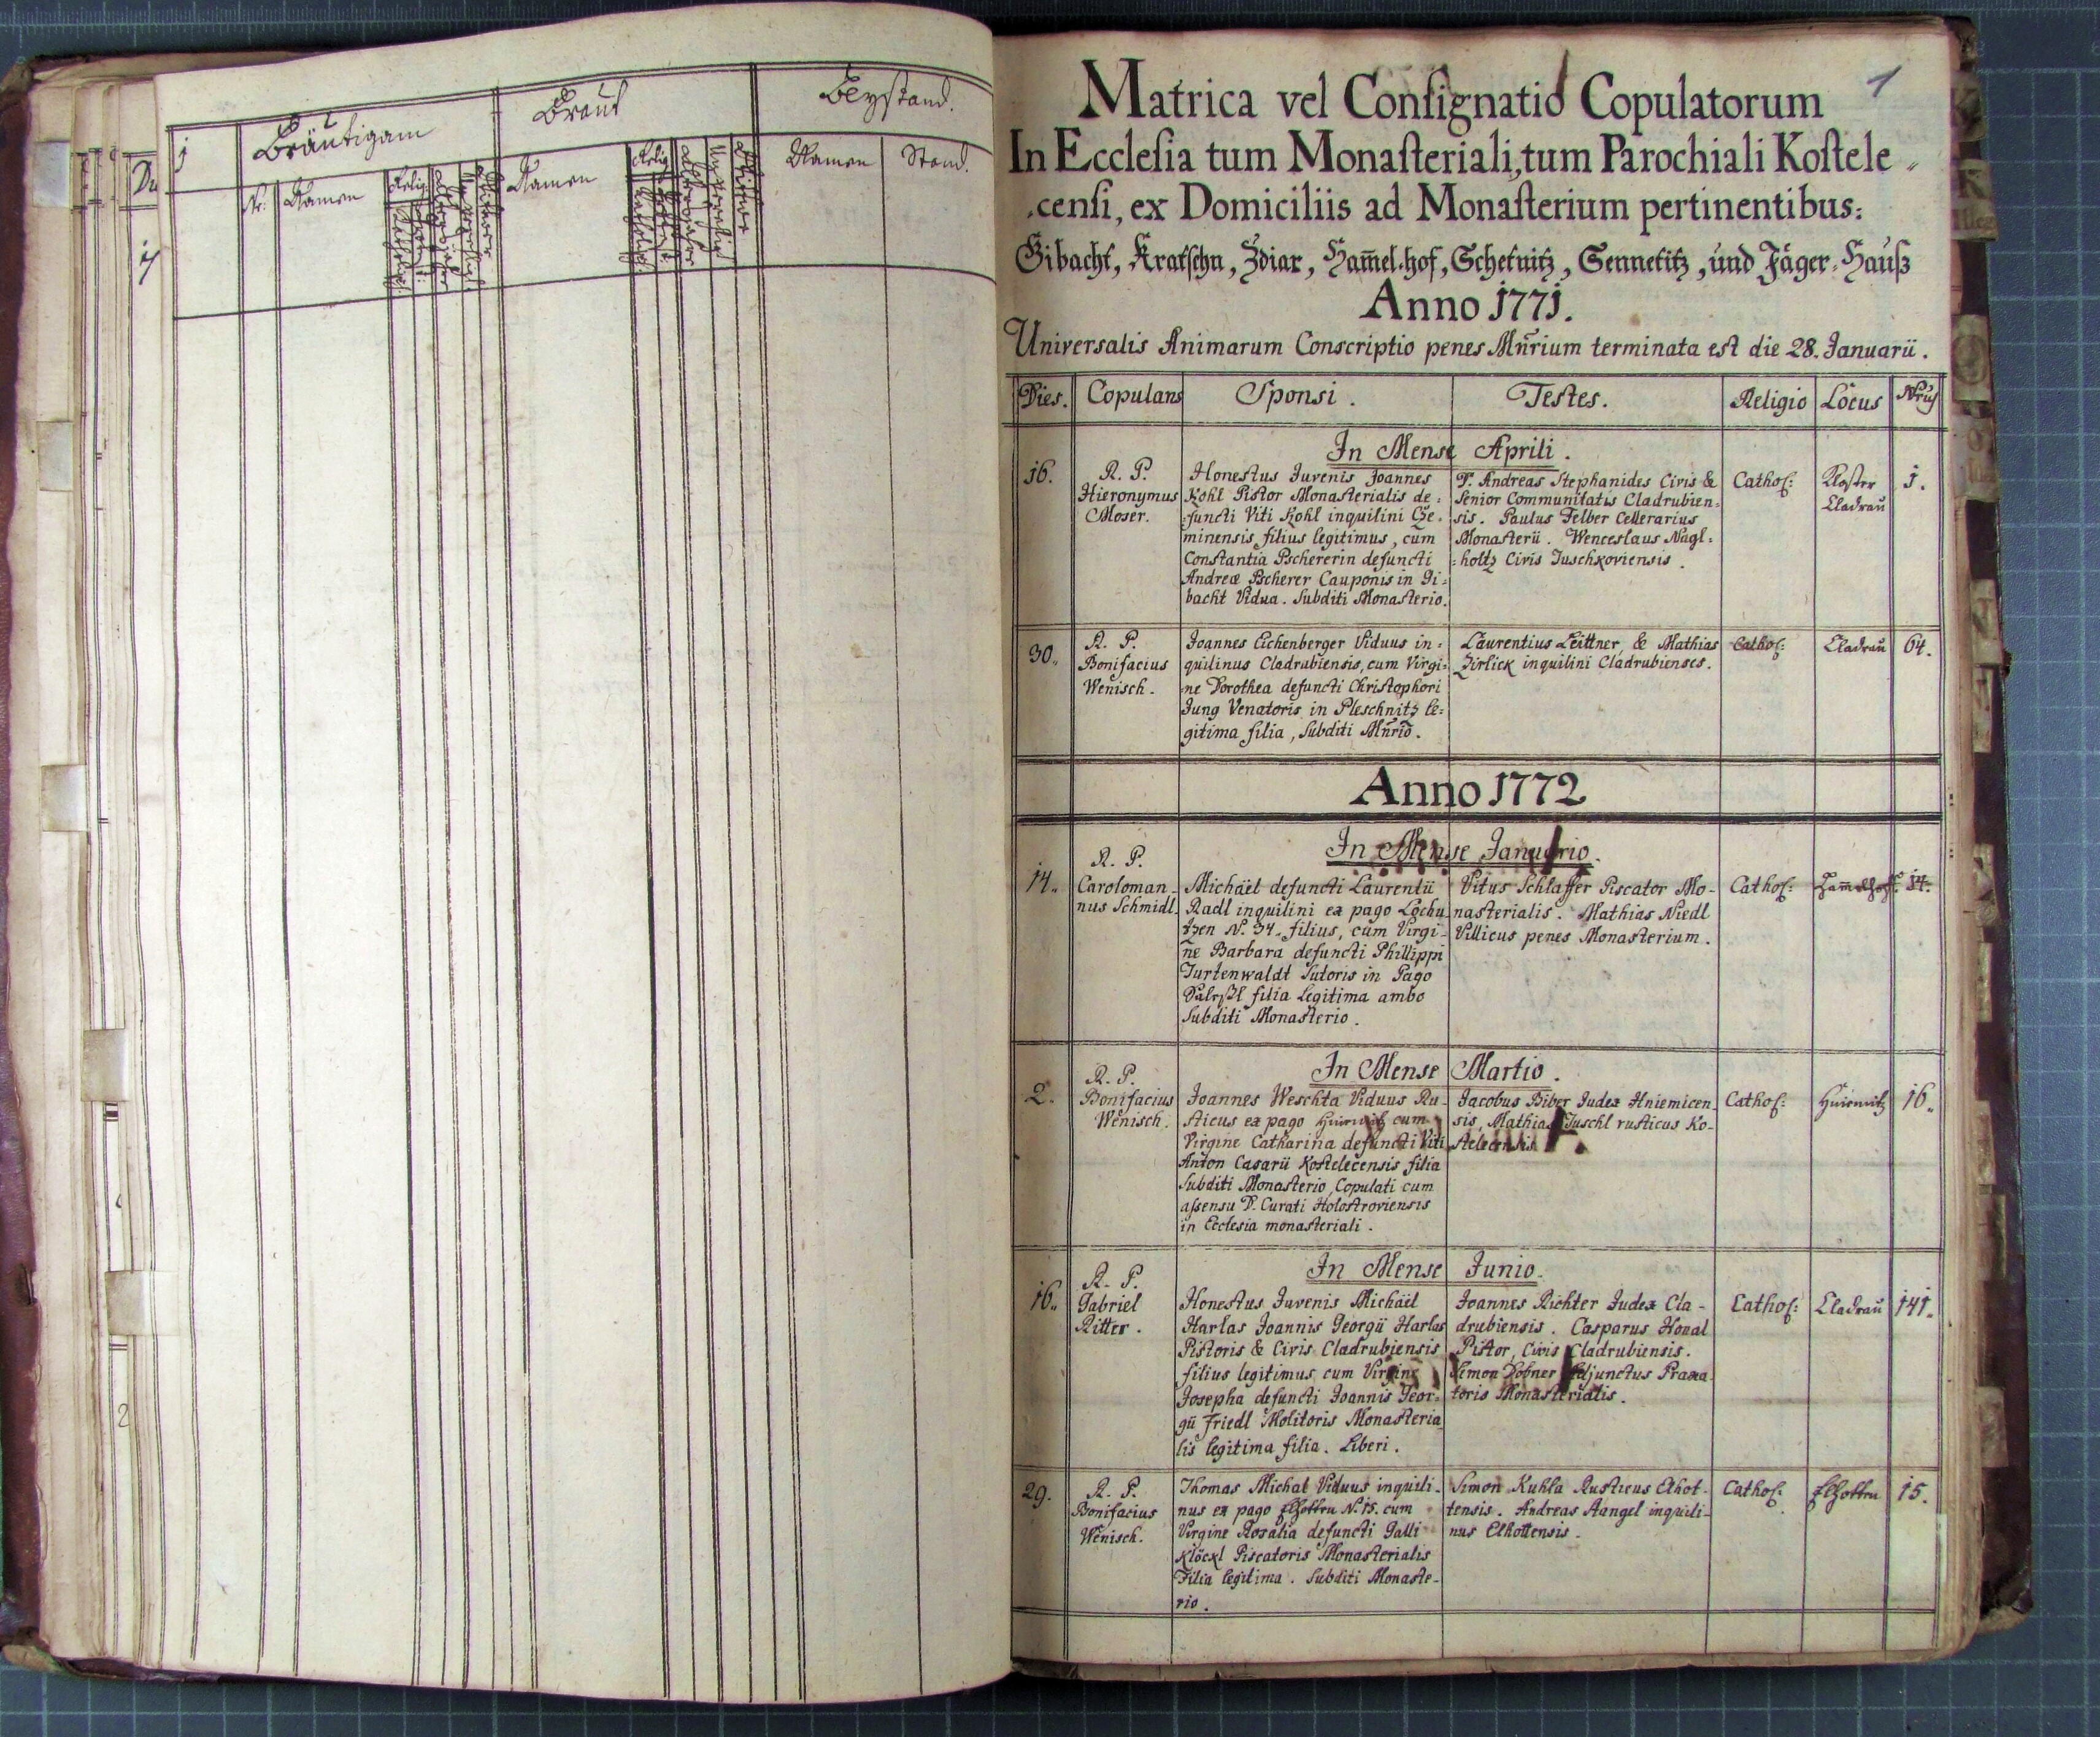 Bräutigam
Braut
Beystand.
Nr.
Namen
Namen
Namen
Stand.
1
Matrica vel Consignatio Copulatorum
In Ecclesia tum Monasteriali, tum Parochiali Kostele-
censi, ex Domiciliis ad Monasterium pertinentibus:
Gibacht, Kratschn, Zdiar, Ham̄el-hof, Schetnitz, Sennetitz, und Jäger-Hauß
Anno 1771.
Universalis Animarum Conscriptio penes Mnrium terminata est die 28. Januarii.
Dies.
Copulans
Sponsi.
Testes.
Religio
Locus
Nrus
In Mense Aprili.
16.
R. P.
Hieronymus
Moser.
Honestus Juvenis Joannes
Kohl Pistor Monasterialis de-
functi Viti Kohl inquilini Cze-
minensis filius legitimus, cum
Constantia Pschererin defuncti
Andreæ Pscherer Cauponis in Gi-
bacht Vidua. Subditi Monasterio.
D. Andreas Stephanides Civis &
Senior Communitatis Cladrubien-
sis. Paulus Felber Cellerarius
Monasterii. Wenceslaus Nagl-
holtz Civis Tuschkoviensis.
Cathol:
Kloster
Cladrau
1.
30.
R. P.
Bonifacius
Wenisch.
Joannes Eichenberger Viduus in-
quilinus Cladrubiensis, cum Virgi-
ne Dorothea defuncti Christophori
Jung Venatoris in Pleschnitz le-
gitima filia, Subditi Mnrio.
Laurentius Leittner, & Mathias
Zirlick inquilini Cladrubienses.
Cathol:
Cladrau
64.
Anno 1772
In Mense Januario.
14.
R. P.
Caroloman-
nus Schmidl.
Michäel defuncti Laurentii
Radl inquilini ex pago Lochu
tzen N. 34. filius, cum Virgi-
ne Barbara defuncti Phillippi
Turtenwaldt Sutoris in Pago
filia Legitima ambo
Subditi Monasterio.
Vitus Schlaffer Piscator Mo-
nasterialis. Mathias Niedl
Villicus penes Monasterium.
Cathol:
Ham̄elhoff.
14.
In Mense Martio.
2.
R. P.
Bonifacius
Wenisch.
Joannes Weschta Viduus Ru-
sticus ex pago Hniemitz cum
Virgine Catharina defuncti Viti
Anton Casarii Kostelecensis filia
Subditi Monasterio, Copulati cum
assensu D. Curati Holostroviensis
in Ecclesia monasteriali.
Jacobus Biber Judex Hniemicen-
sis, Mathias Tuschl rusticus Ko-
stelecensis.
Cathol:
Hniemitz
16.
In Mense Junio.
16.
R. P.
Gabriel
Ritter.
Honestus Juvenis Michäel
Harlas Joannis Georgii Harlas
Pistoris & Civis Cladrubiensis
filius legitimus, cum Virgine
Josepha defuncti Joannis Geor-
gii Friedl Molitoris Monasteria
lis legitima filia. Liberi.
Joannes Richter Judex Cla-
drubiensis. Casparus Honal
Pistor, Civis Cladrubiensis.
Simon Dobner Adjunctus Praxa
toris Monasterialis.
Cathol:
Cladrau
141.
29.
R. P.
Bonifacius
Wenisch.
Thomas Michal Viduus inquili-
nus ex pago Elhotten N. 15. cum
Virgine Rosalia defuncti Galli
Klöckl Piscatoris Monasterialis
Filia legitima. Subditi Monaste-
rio.
Simon Kuhla Rusticus Elhot-
tensis. Andreas Aangel inquili-
nus Elhottensis.
Cathol:
Elhotten
15.